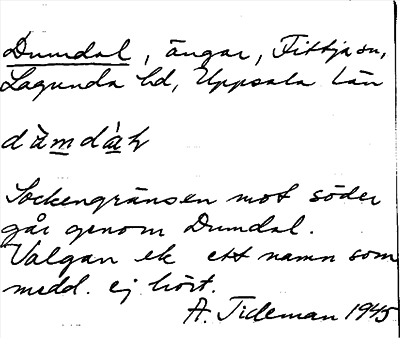 Dumdal, ängar, Fittja sn,
Lagunda hd, Uppsala län
Sockengränsen mot söder
går genom Dumdal.
Valgan ek ett namn som
medd. ej hört.
A. Tideman 1945